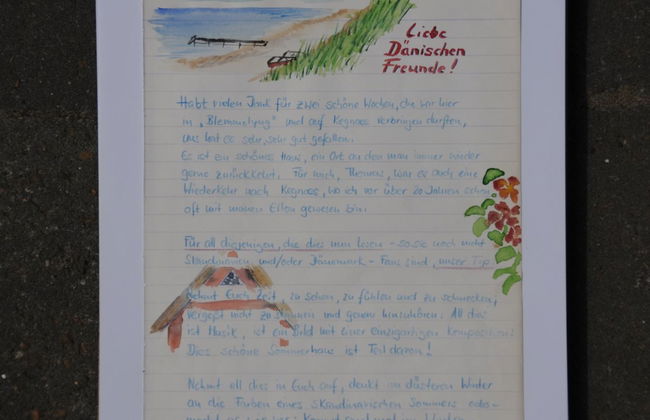 Liebe
Dänischen
Freunde!
Habt vielen Dank für zwei schöne Wochen, die wir hier
in „ und auf Kegnaes verbringen durften,
uns hat es sehr, sehr gut gefallen.
Es ist ein schönes Haus, ein Ort an den man immer wieder
gerne zurückkehrt. Für mich, Thomas, war es auch eine
Wiederkehr nach Kegnaes, wo ich vor über 20 Jahren schon
oft mit meinen Eltern gewesen bin.
Für all diejenigen, die dies nun lesen - so sie noch nicht
Skandinavien und/oder Dänemark - Fans sind, unser Tip
Nehmt Euch Zeit, zu sehen, zu fühlen und zu schmecken,
vergeßt nicht zu staunen und genau hinzuhören. All dies
ist Musik, ist ein Bild mit einer einzigartigen Komposition.
Dies schöne Sommerhaus ist Teil davon!
Nehmt all dies in Euch auf, denkt im düsteren Winter
an die Farben eines Skandinavischen Sommers oder